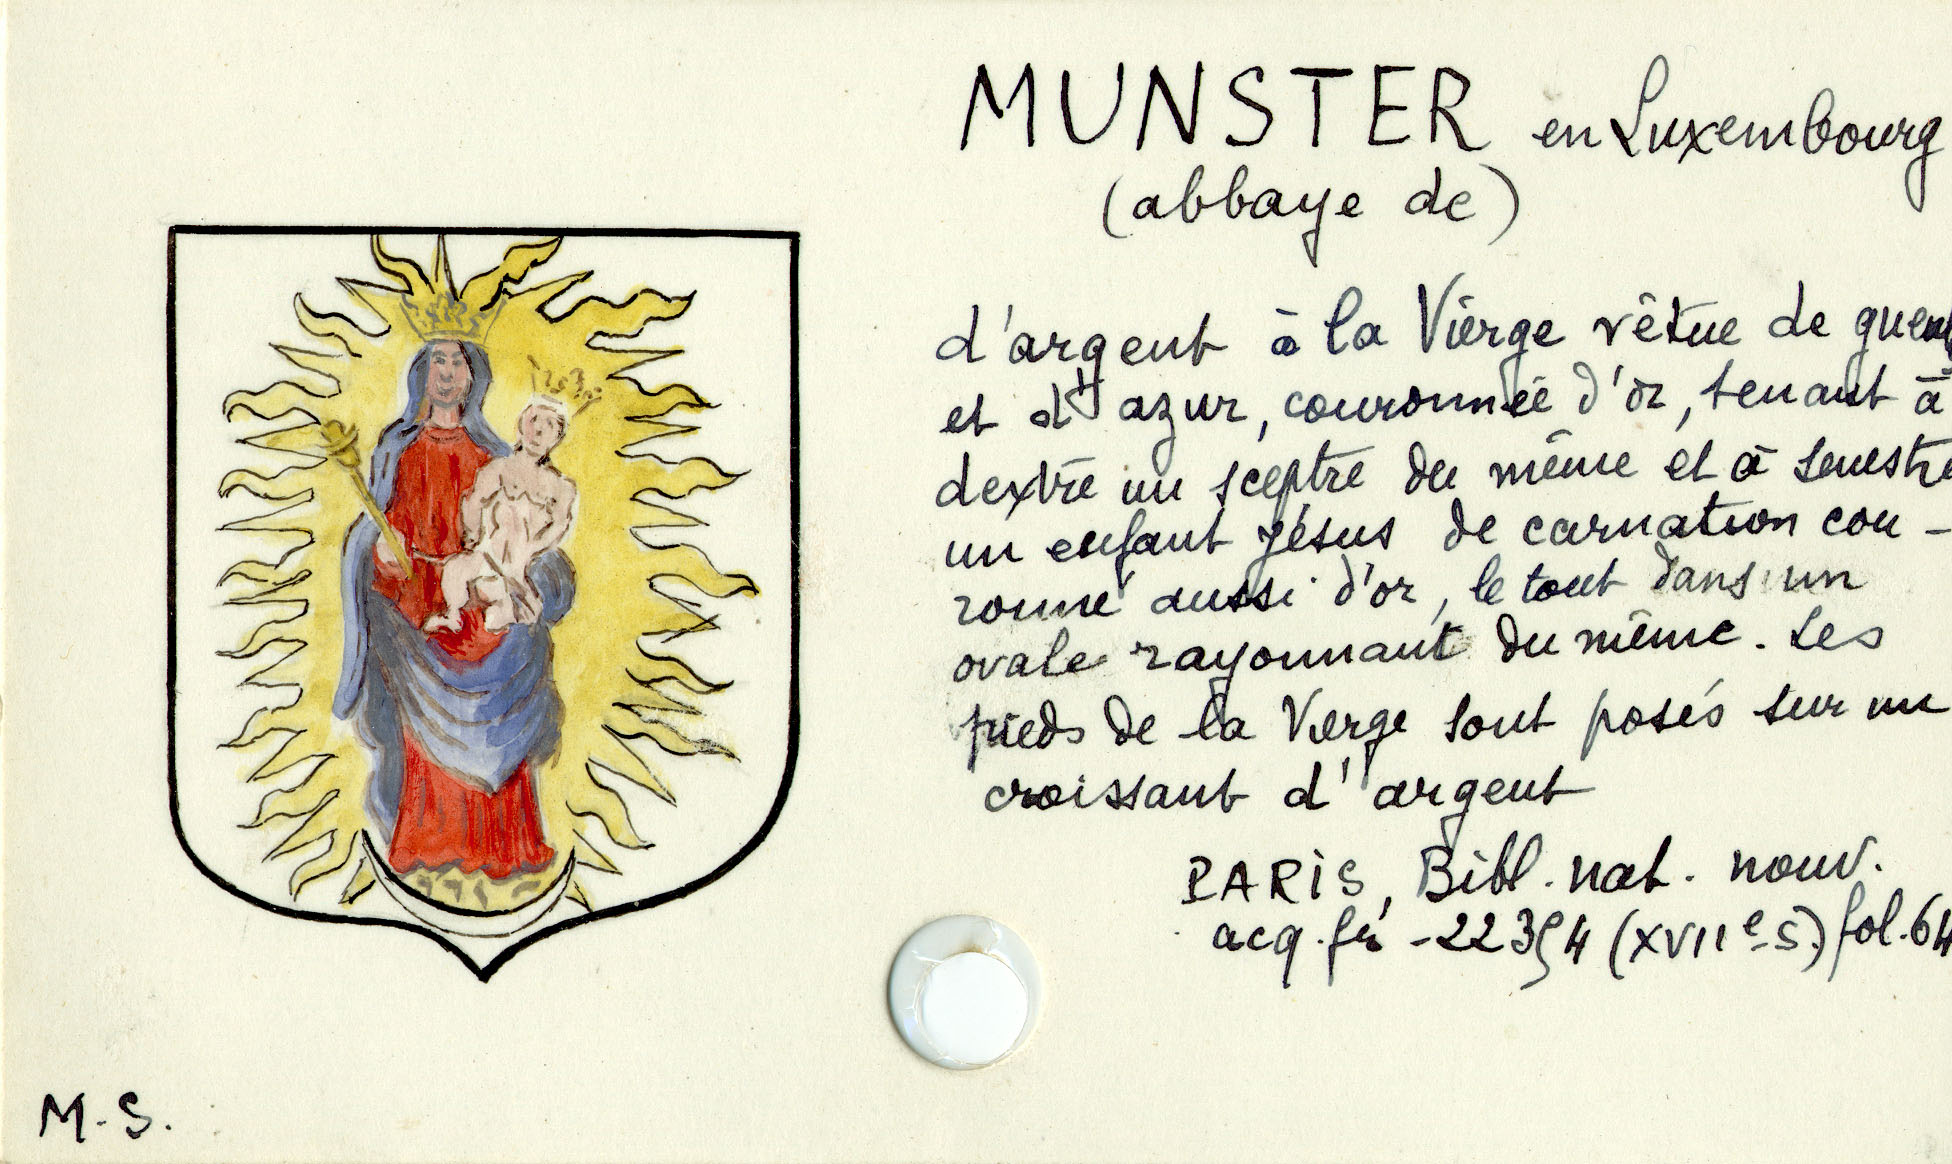 MUNSTER en Luxembourg
(abbaye de)
d'argent à la Vierge vêtue de gueul
et d'azur, couronnée d'or, tenant à
dextre un sceptre du même et à senestre
un enfant Jésus de carnation cou-
ronné aussi d'or, le tout dans un
ovale rayonnant du même. Les
pieds de la Vierge sont posés sur un
croissant d'argent
PARIS, Bibl. nat. nouv.
acq. fr - (XVIIe S.) fol. 64
M. S.